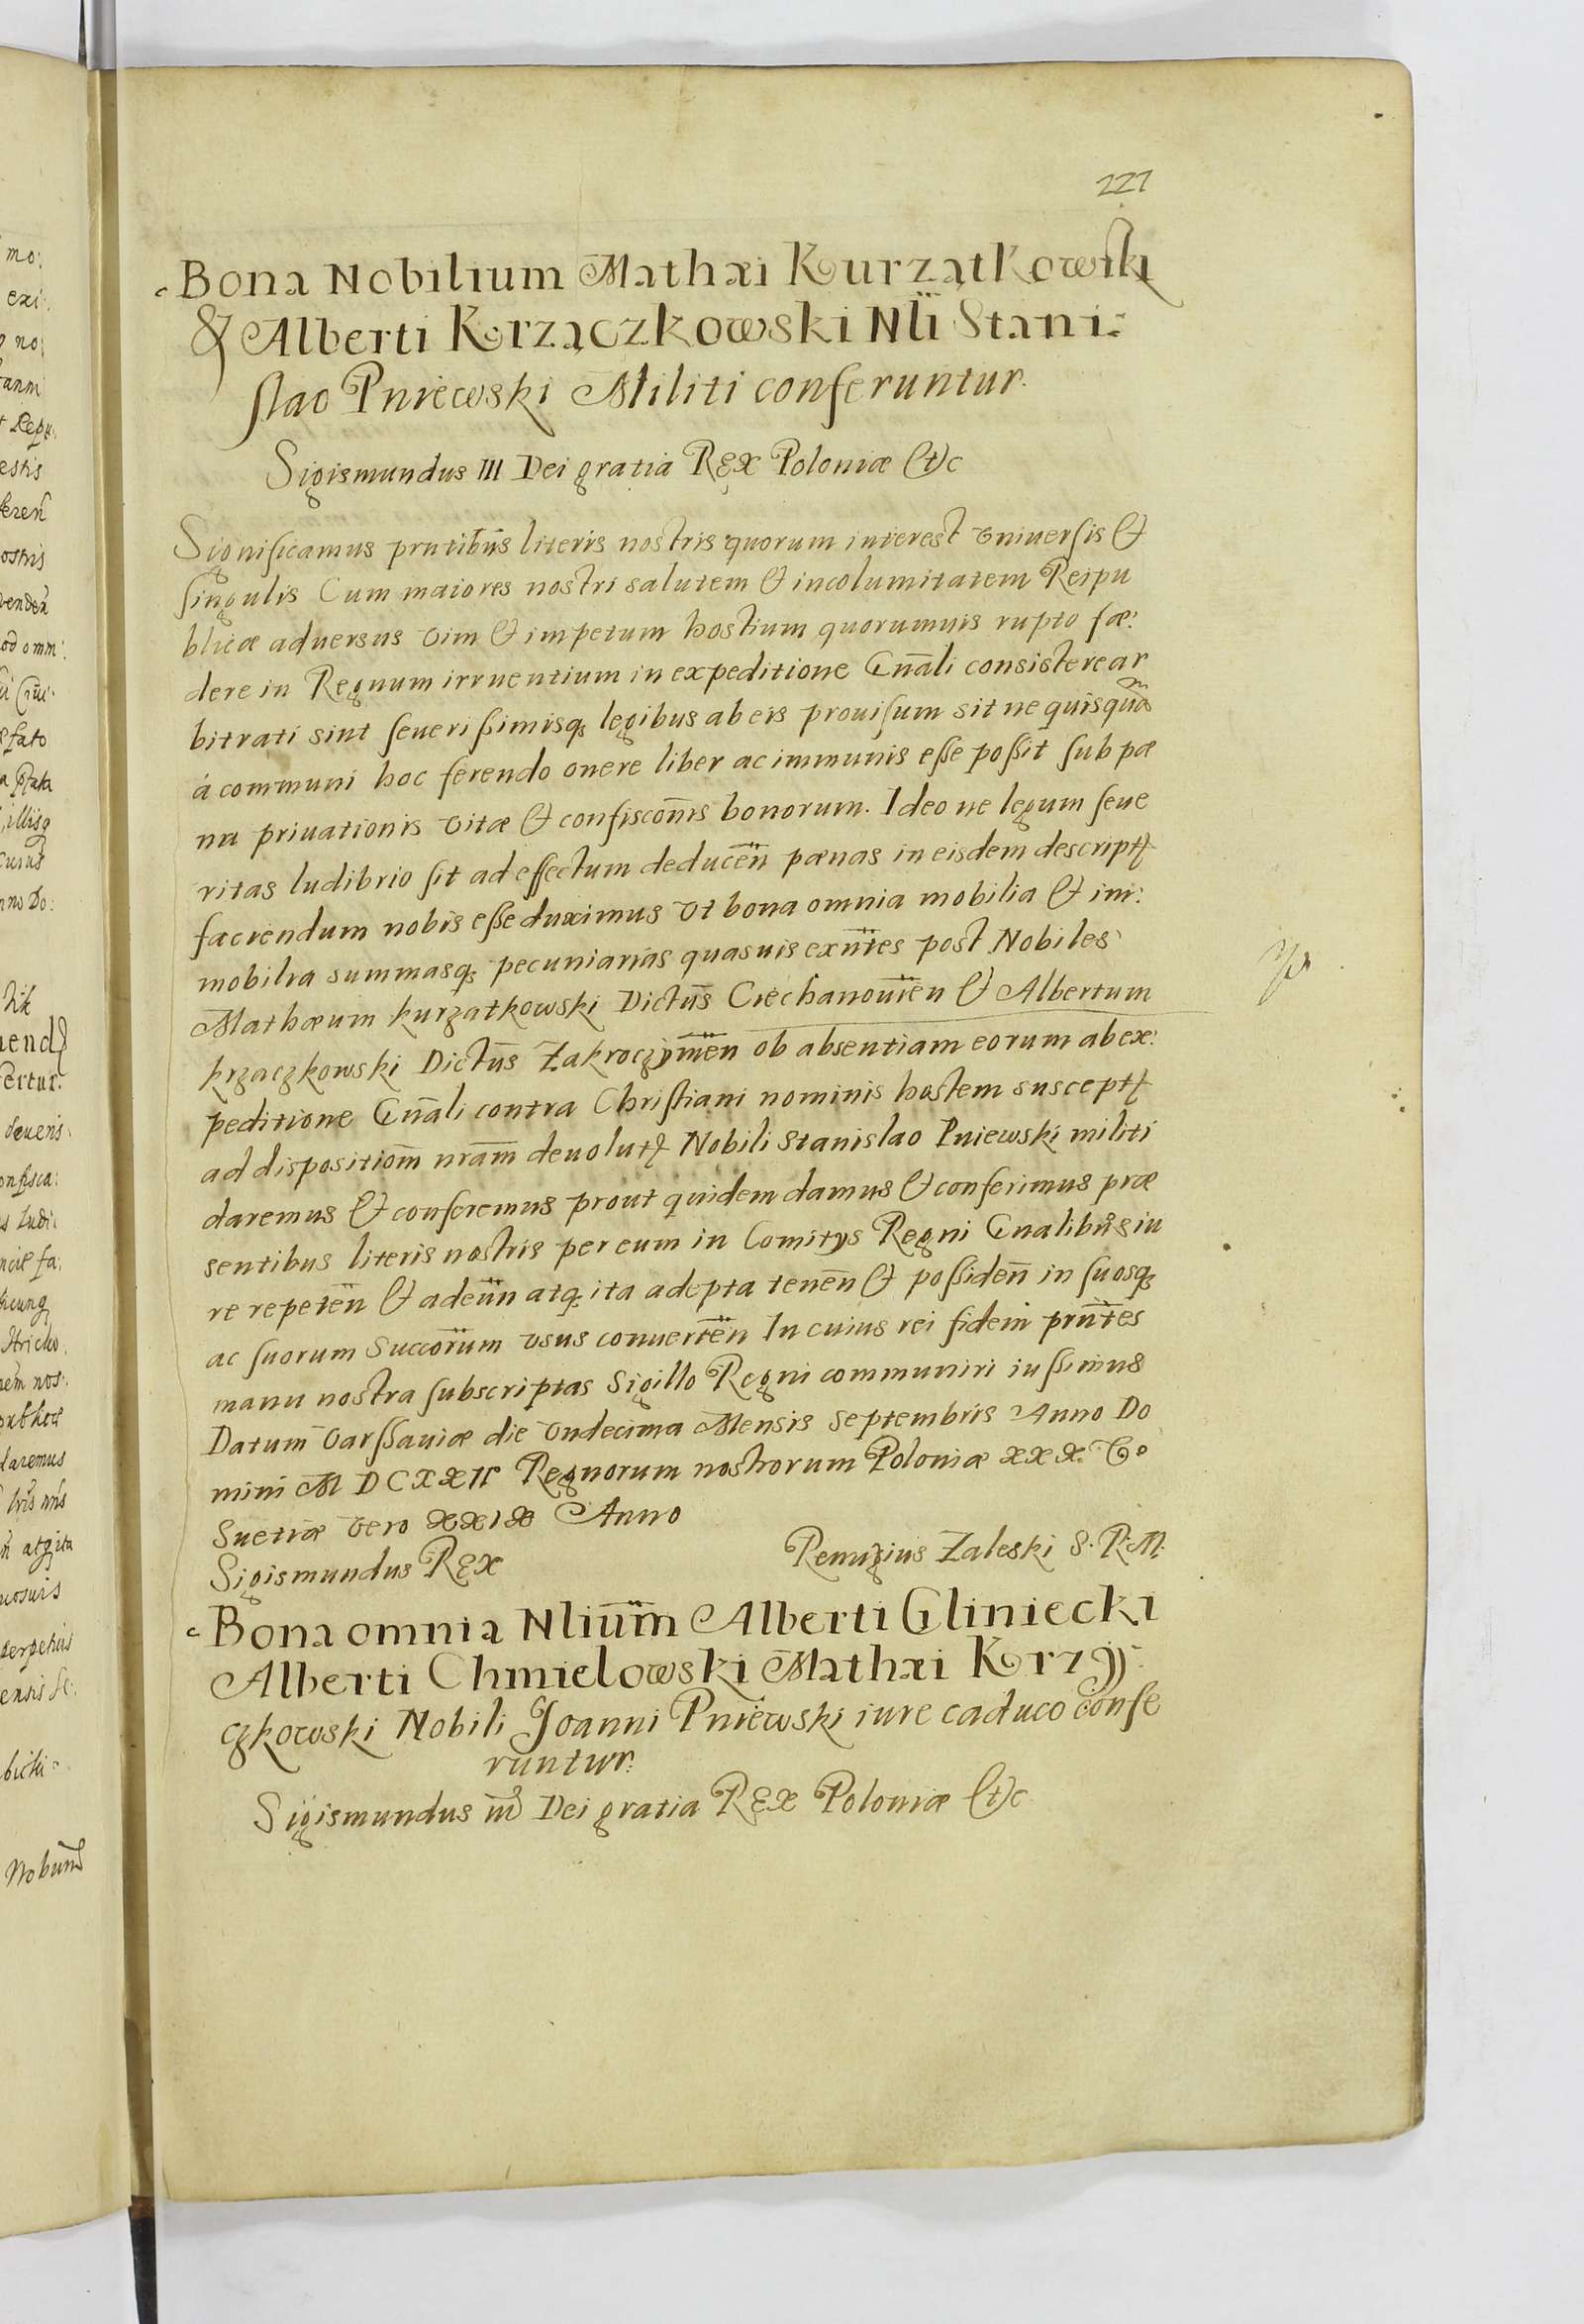 221
Bona Nobilium Mathæi Kurzątkowski
& Alberti Krzączkowski Nlĩ Stani:
slao Pniewski Militi conferuntur.
Sigismundus III Dei gratia Rex Poloniæ &c
Significamus prntibus literis nostris quorum interest vniuersis &
singulis Cum maiores nostri salutem & incolumitatem Reipu
blicæ aduersus vim & impetum hostium quorumuis rupto fæ:
dere in Regnum irruentium in expeditione Gnãli consistere ar
bitrati sint seuerissimisq legibus ab eis prouisum sit ne quisquã
á communi hoc ferendo onere liber ac immunis esse possit sub pæ
na priuationis vitæ & confiscoñis bonorum. Ideo ne legum seue
ritas ludibrio sit ad effectum deduceñ pænas in eisdem descript
faciendum nobis esse duximus vt bona omnia mobilia & im:
mobilia summasq pecuniarias quasuis exñtes post Nobiles
Mathæum kurzatkowski Dictus Ciechanouieñ & Albertum
krzaczkowski Dictus Zakroczymeñ ob absentiam eorum ab ex:
peditione Gnãli contra Christiani nominis hostem suscept
ad dispositiom nram deuolut Nobili Stanislao Pniewski militi
daremus & conferemus prout quidem damus & conferimus præ
sentibus literis nostris per eum in Comitys Regni Gnalibus iu
re repeteñ & adeuñ atq ita adepta teneñ & possideñ in suosq
ac suorum Succorum vsus conuerteñ In cuius rei fidem prñtes
manu nostra subscriptas Sigillo Regni communiri iussimus
Datum Varssauiæ die vndecima Mensis Septembris Anno Do
mini M DCXXII Regnorum nostrorum Poloniæ xxx Vo
Suetiæ vero xxix Anno
Sigismundus Rex
Remigius Zaleski S. R. M.
Bona omnia Nliũm Alberti Gliniecki
Alberti Chmielowski Mathæi Krzą
czkowski Nobili Joanni Pniewski iure caduco confe
runtur.
Sigismundus III Dei gratia Rex Poloniæ &c